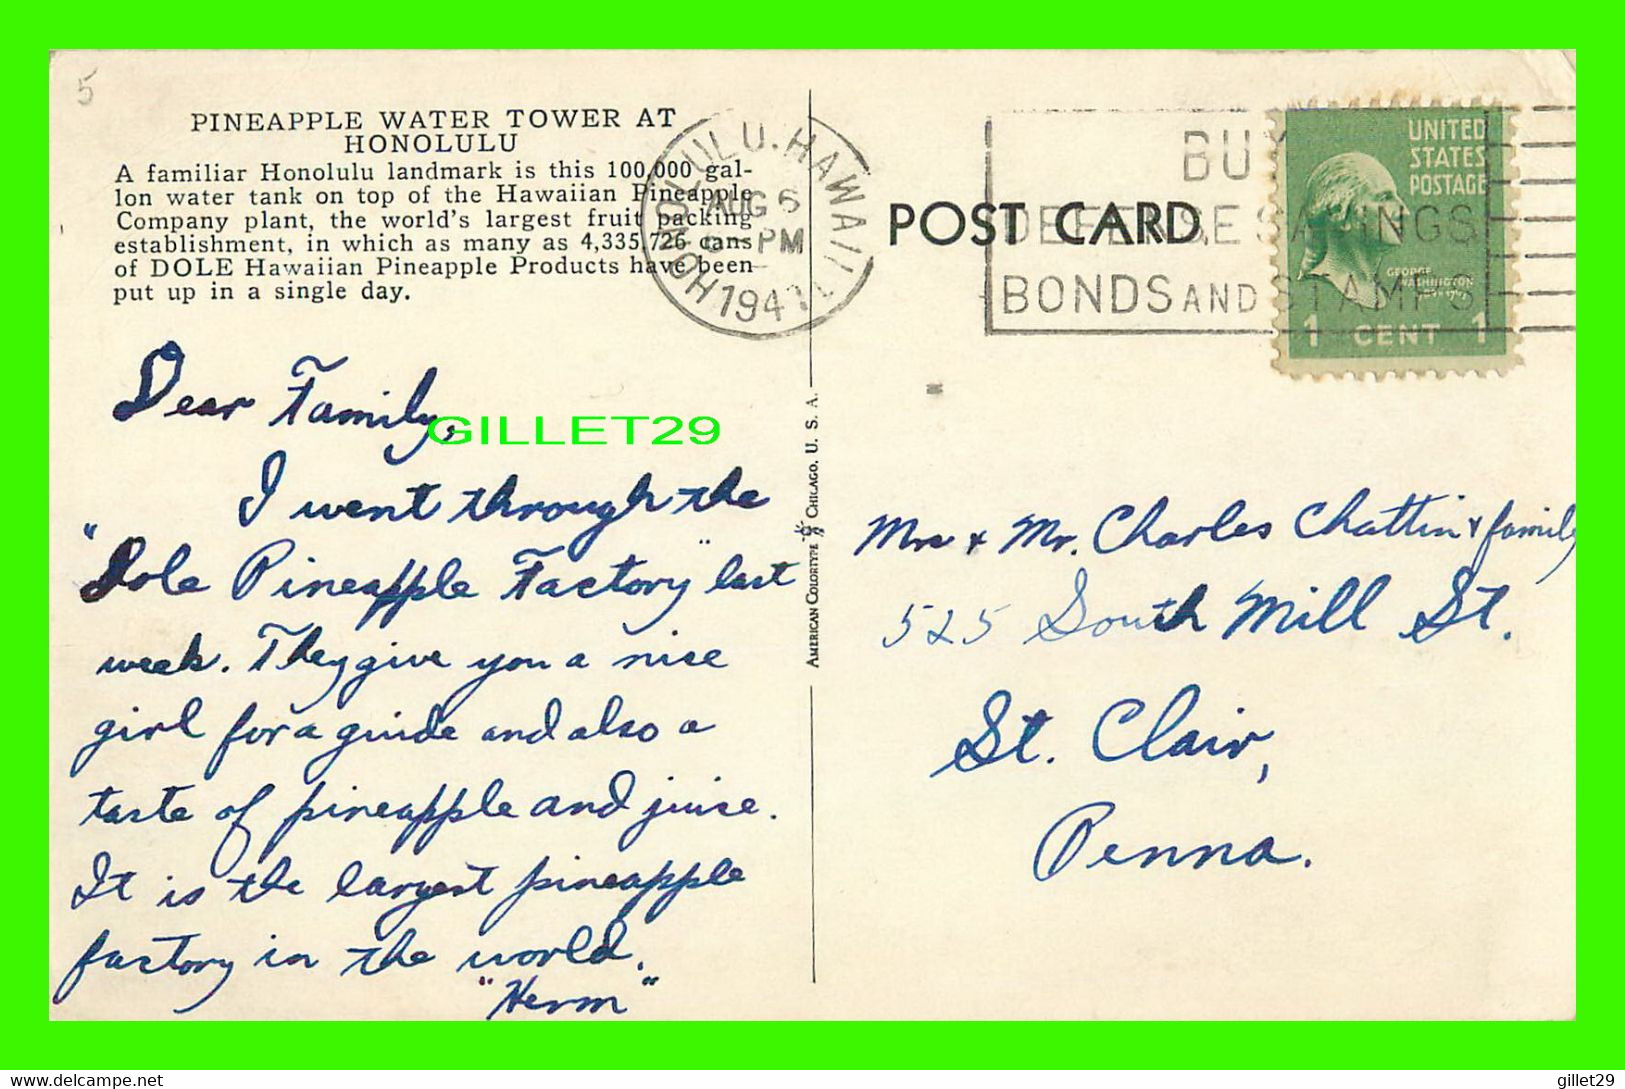 5
PINEAPPLE WATER TOWER AT
HONOLULU
A familiar Honolulu landmark is this 100,000 gal-
lon water tank on top of the Hawaiian Pineapple
Company plant, the world's largest fruit packing
establishment, in which as many as 4,335,726 cans
of DOLE Hawaiian Pineapple Products have been
put up in a single day.
Dear Family,
I went through the
"Dole Pineapple Factory" last
week. They give you a nice
girl for a guide and also a
taste of pineapple and juice.
It is the largest pineapple
factory in the world.
"Herm"
GILLET29
AMERICAN COLORTYPE CHICAGO, U. S. A.
HONOLULU, HAWAII
AUG 6
PM
1941
POST CARD
BUY
DEFENSE SAVINGS
BONDS AND STAMPS
UNITED
STATES
POSTAGE
GEORGE
WASHINGTON
1 CENT 1
Mrs & Mr. Charles Chattin & family
525 South Mill St.
St. Clair,
Penna.
gillet29
gillet29